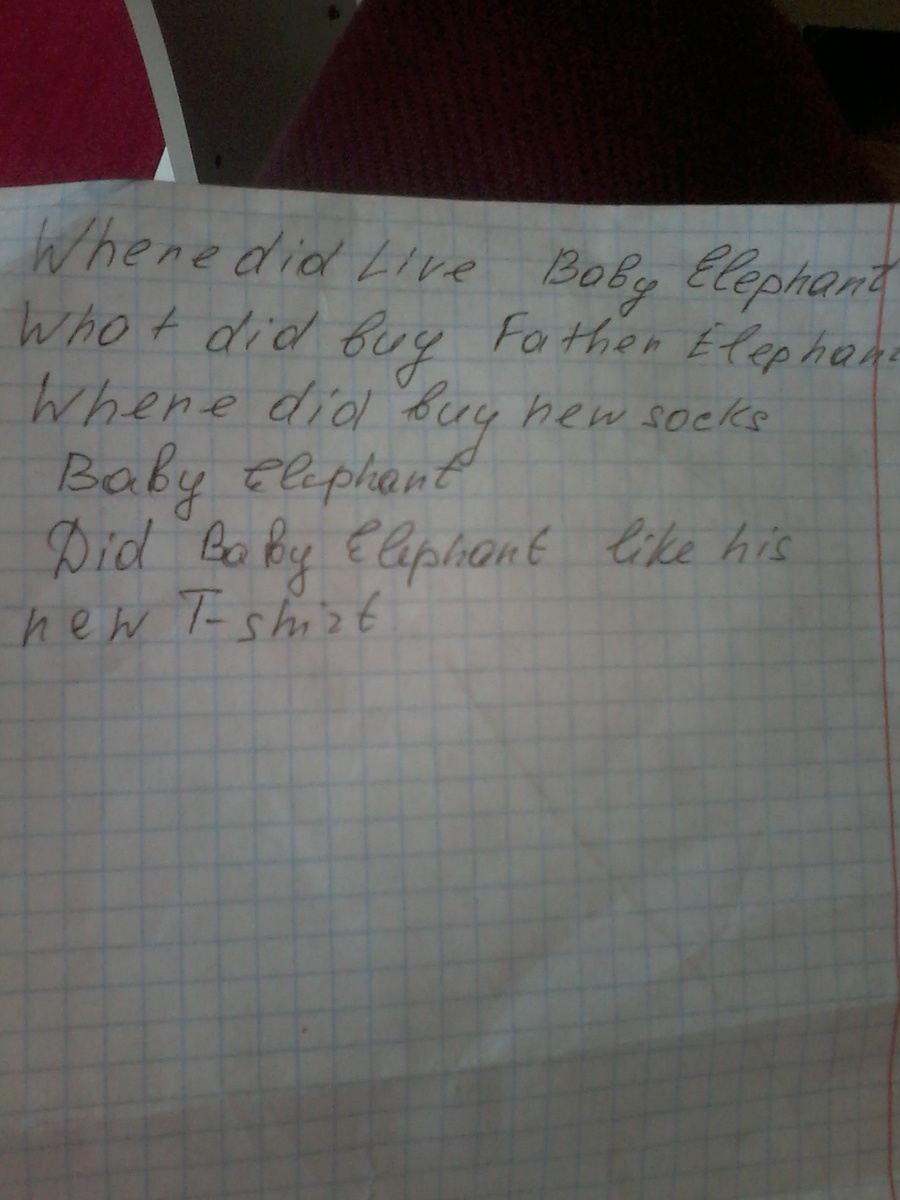 Where did Live Baby Elephant
What did buy Father Elephant
Where did buy new socks
Baby Elephant
Did Baby Elephant like his
new T-shirt